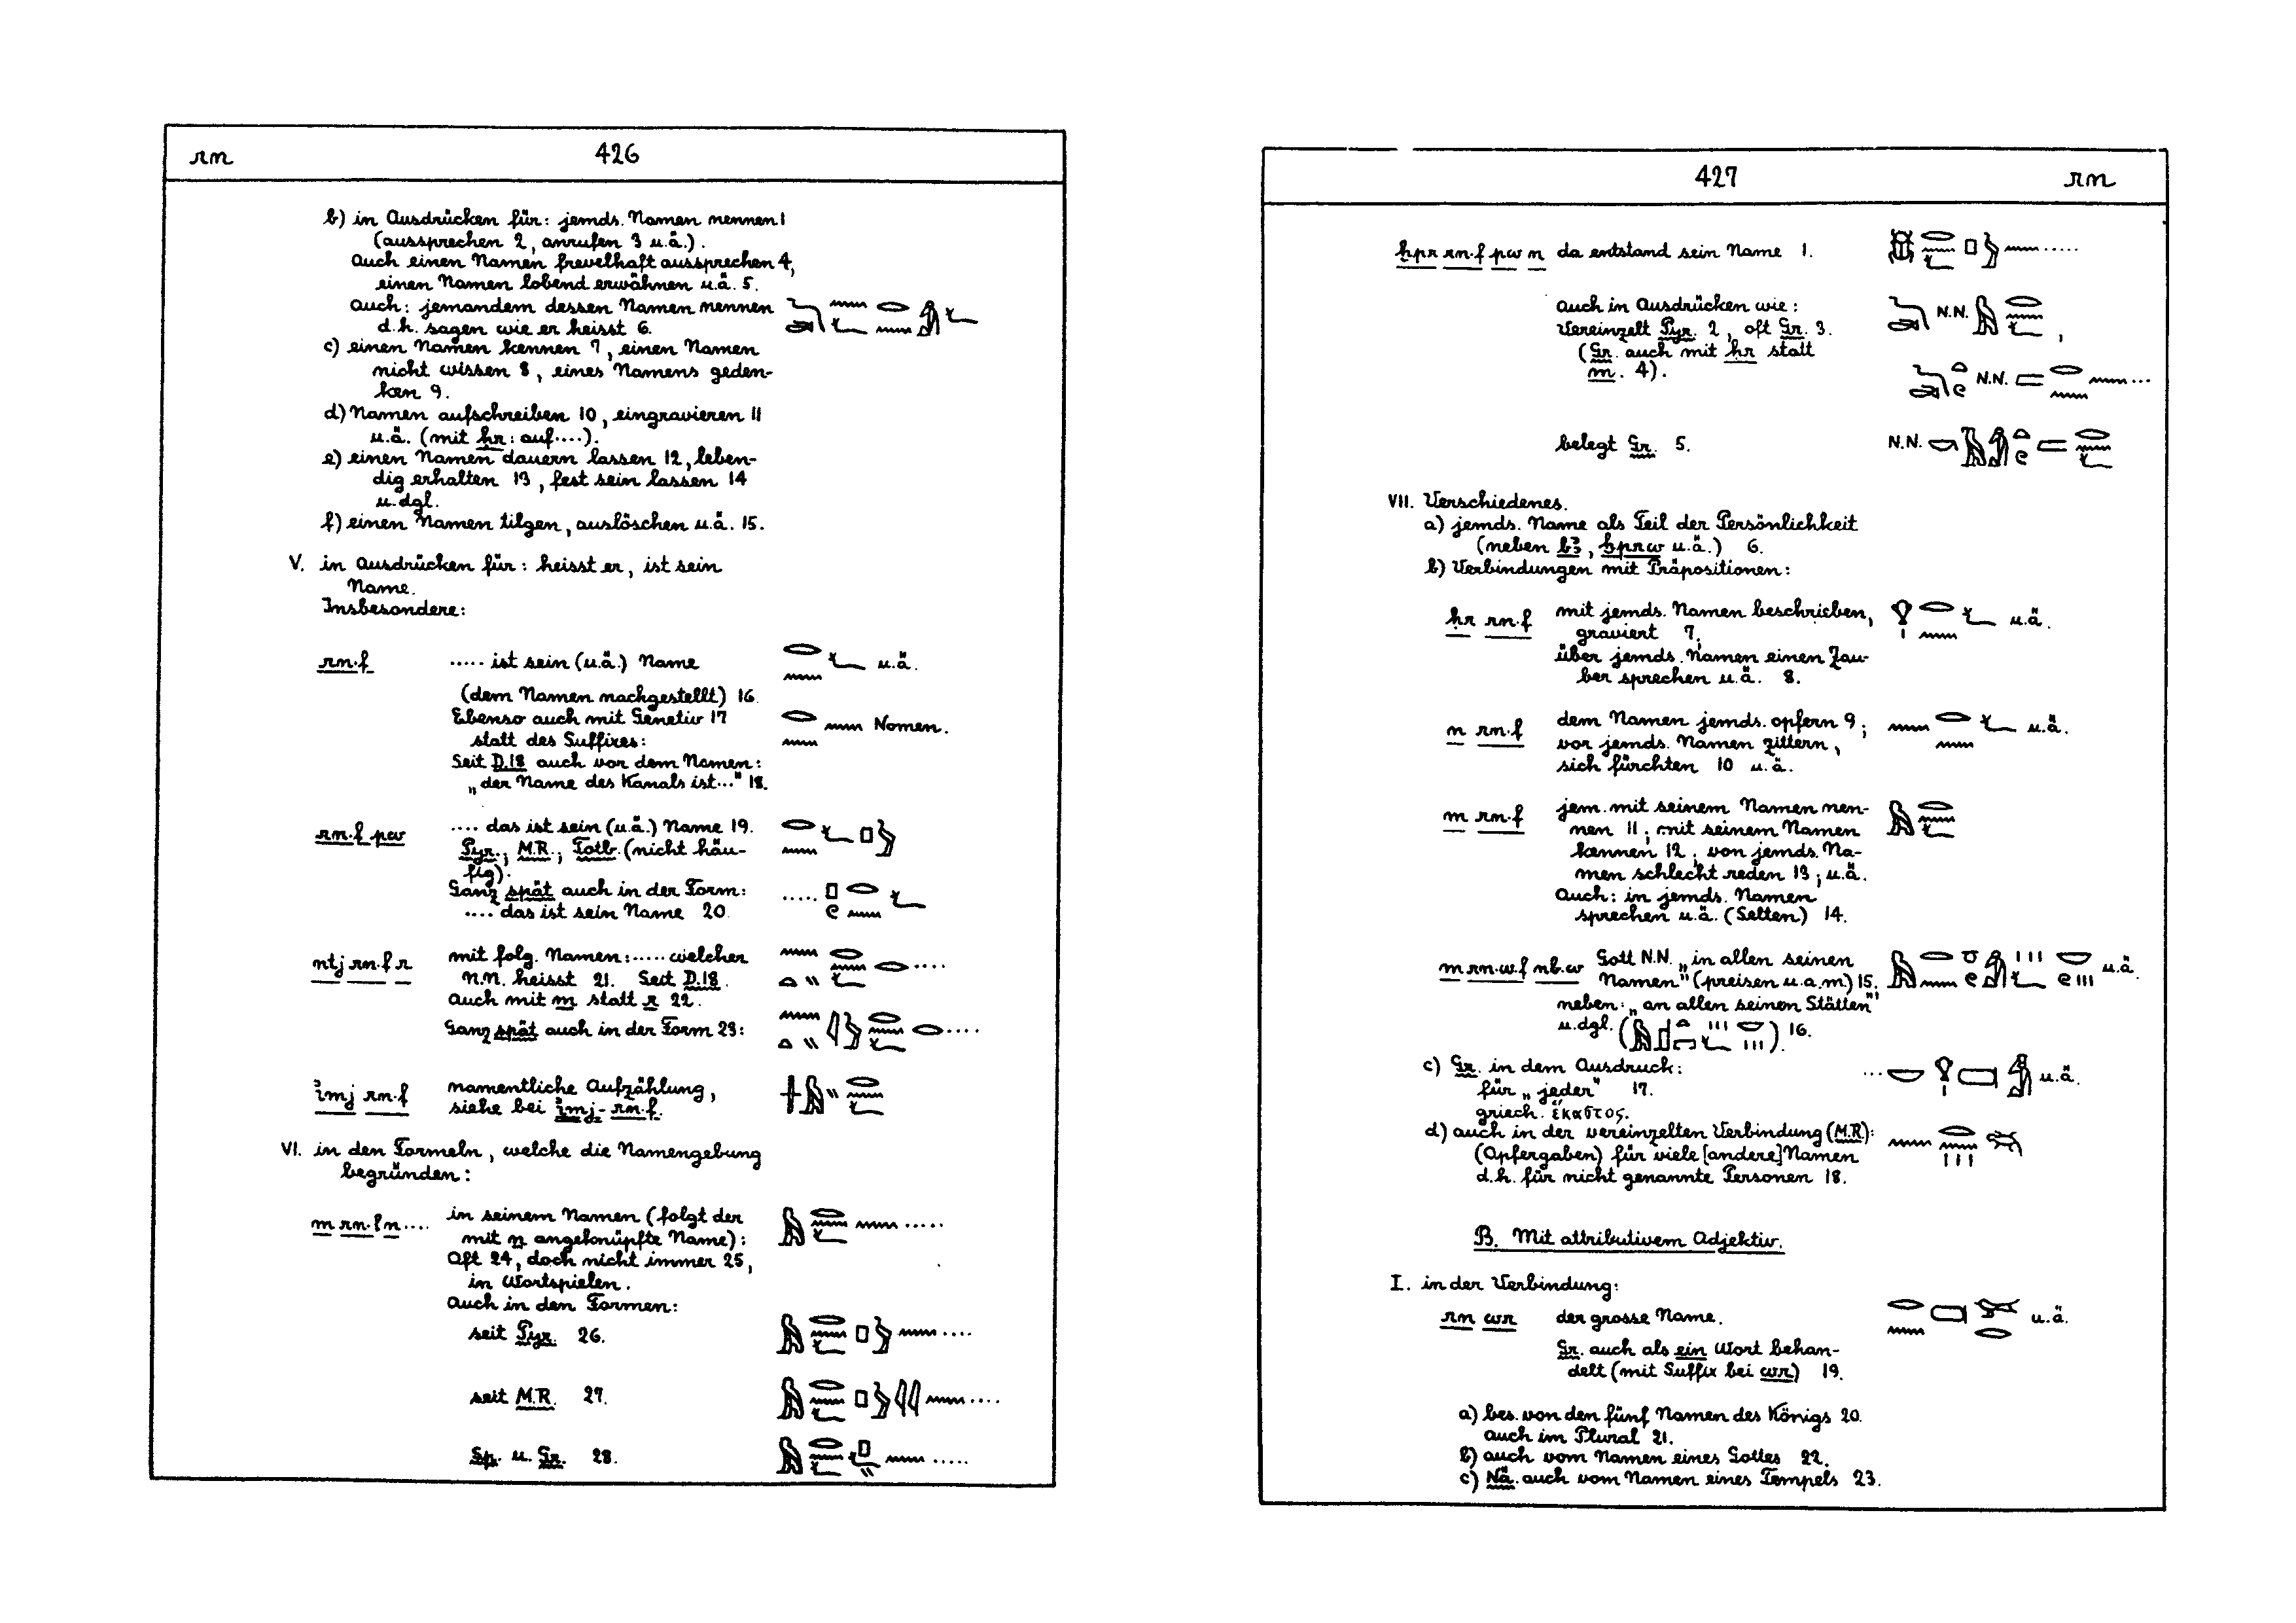 rn 426
b) in Ausdrücken für: jemds. Namen nennen 1
(aussprechen 2, anrufen 3 u.ä.).
Auch einen Namen frevelhaft aussprechen 4,
einen Namen lobend erwähnen u.ä. 5.
Auch: jemandem dessen Namen nennen
d.h. sagen wie er heisst 6.
c) einen Namen kennen 7, einen Namen
nicht wissen 8, eines Namens geden-
ken 9.
d) Namen aufschreiben 10, eingravieren 11
u.ä. (mit ḥr: auf....).
e) einen Namen dauern lassen 12, leben-
dig erhalten 13, fest sein lassen 14
u.dgl.
f) einen Namen tilgen, auslöschen u.ä. 15.
V. in Ausdrücken für: heisst er, ist sein
Name.
Insbesondere:
rn.f ..... ist sein (u.ä.) Name 𓂋𓈖𓆑 u.ä.
(dem Namen nachgestellt) 16.
Ebenso auch mit Genetiv 17 𓂋𓈖𓈖 Nomen.
statt des Suffixes:
Seit D.18 auch vor dem Namen:
„der Name des Kanals ist..." 18.
rn.f pw .... das ist sein (u.ä.) Name 19. 𓂋𓈖𓆑𓊪𓅱
Pyr.; M.R.; Totb. (nicht häu-
fig).
Ganz spät auch in der Form: ..... 𓊪𓏲𓂋𓈖𓆑
.... das ist sein Name 20.
ntj rn.f r mit folg. Namen: ..... welcher 𓈖𓏏𓏭𓂋𓈖𓆑𓂋....
N.N. heisst 21. Seit D.18.
Auch mit m statt r 22.
Ganz spät auch in der Form 23: 𓈖𓏏𓏭𓇋𓅱𓂋𓈖𓆑𓂋....
ỉmj rn.f namentliche Aufzählung, 𓏶𓅓𓏭𓂋𓈖𓆑
siehe bei ỉmj-rn.f.
VI. in den Formeln, welche die Namengebung
begründen:
m rn.f n.... in seinem Namen (folgt der 𓅓𓂋𓈖𓆑𓈖.....
mit n angeknüpfte Name):
Oft 24, doch nicht immer 25,
in Wortspielen.
Auch in den Formen:
seit Pyr. 26. 𓅓𓂋𓈖𓆑𓊪𓅱𓈖....
seit M.R. 27. 𓅓𓂋𓈖𓆑𓊪𓅱𓇋𓇋𓈖....
Sp. u. Gr. 28. 𓅓𓂋𓈖𓆑𓊪𓆑𓏭𓈖.....
427 rn
ḫpr rn.f pw n da entstand sein Name 1. 𓆣𓂋𓈖𓆑𓊪𓅱𓈖.....
Auch in Ausdrücken wie:
Vereinzelt Pyr. 2, oft Gr. 3. N.N. 𓅓𓂋𓈖𓆑,
(Gr. auch mit ḥr statt
m. 4). N.N. 𓐝𓂋𓈖𓈖...
belegt Gr. 5. N.N.
VII. Verschiedenes.
a) jemds. Name als Teil der Persönlichkeit
(neben bꜣ, ḫprw u.ä.) 6.
b) Verbindungen mit Präpositionen:
ḥr rn.f mit jemds. Namen beschrieben, 𓁷𓏤𓂋𓈖𓆑 u.ä.
graviert 7;
über jemds. Namen einen Zau-
ber sprechen u.ä. 8.
n rn.f dem Namen jemds. opfern 9; 𓈖𓂋𓈖𓆑 u.ä.
vor jemds. Namen zittern,
sich fürchten 10 u.ä.
m rn.f jem. mit seinem Namen nen- 𓅓𓂋𓈖𓆑
nen 11; mit seinem Namen
kennen 12; von jemds. Na-
men schlecht reden 13; u.ä.
Auch: in jemds. Namen
sprechen u.ä. (Selten) 14.
m rn.w.f nb.w Gott N.N. „in allen seinen u.ä.
Namen" (preisen u.a.m.) 15.
neben: „an allen seinen Stätten"
u.dgl. 16.
c) Gr. in dem Ausdruck: ...𓎟𓁷𓏤𓍷𓀀 u.ä.
für „jeder" 17.
griech. ἕκαστος.
d) auch in der vereinzelten Verbindung (M.R.): 𓈖𓂋𓈖𓏥𓆈
(Opfergaben) für viele [andere] Namen
d.h. für nicht genannte Personen 18.
B. Mit attributivem Adjektiv.
I. in der Verbindung:
rn wr der grosse Name. 𓂋𓈖𓍷𓅨𓂋 u.ä.
Gr. auch als ein Wort behan-
delt (mit Suffix bei wr) 19.
a) bes. von den fünf Namen des Königs 20.
auch im Plural 21.
b) auch vom Namen eines Gottes 22.
c) Nä. auch vom Namen eines Tempels 23.